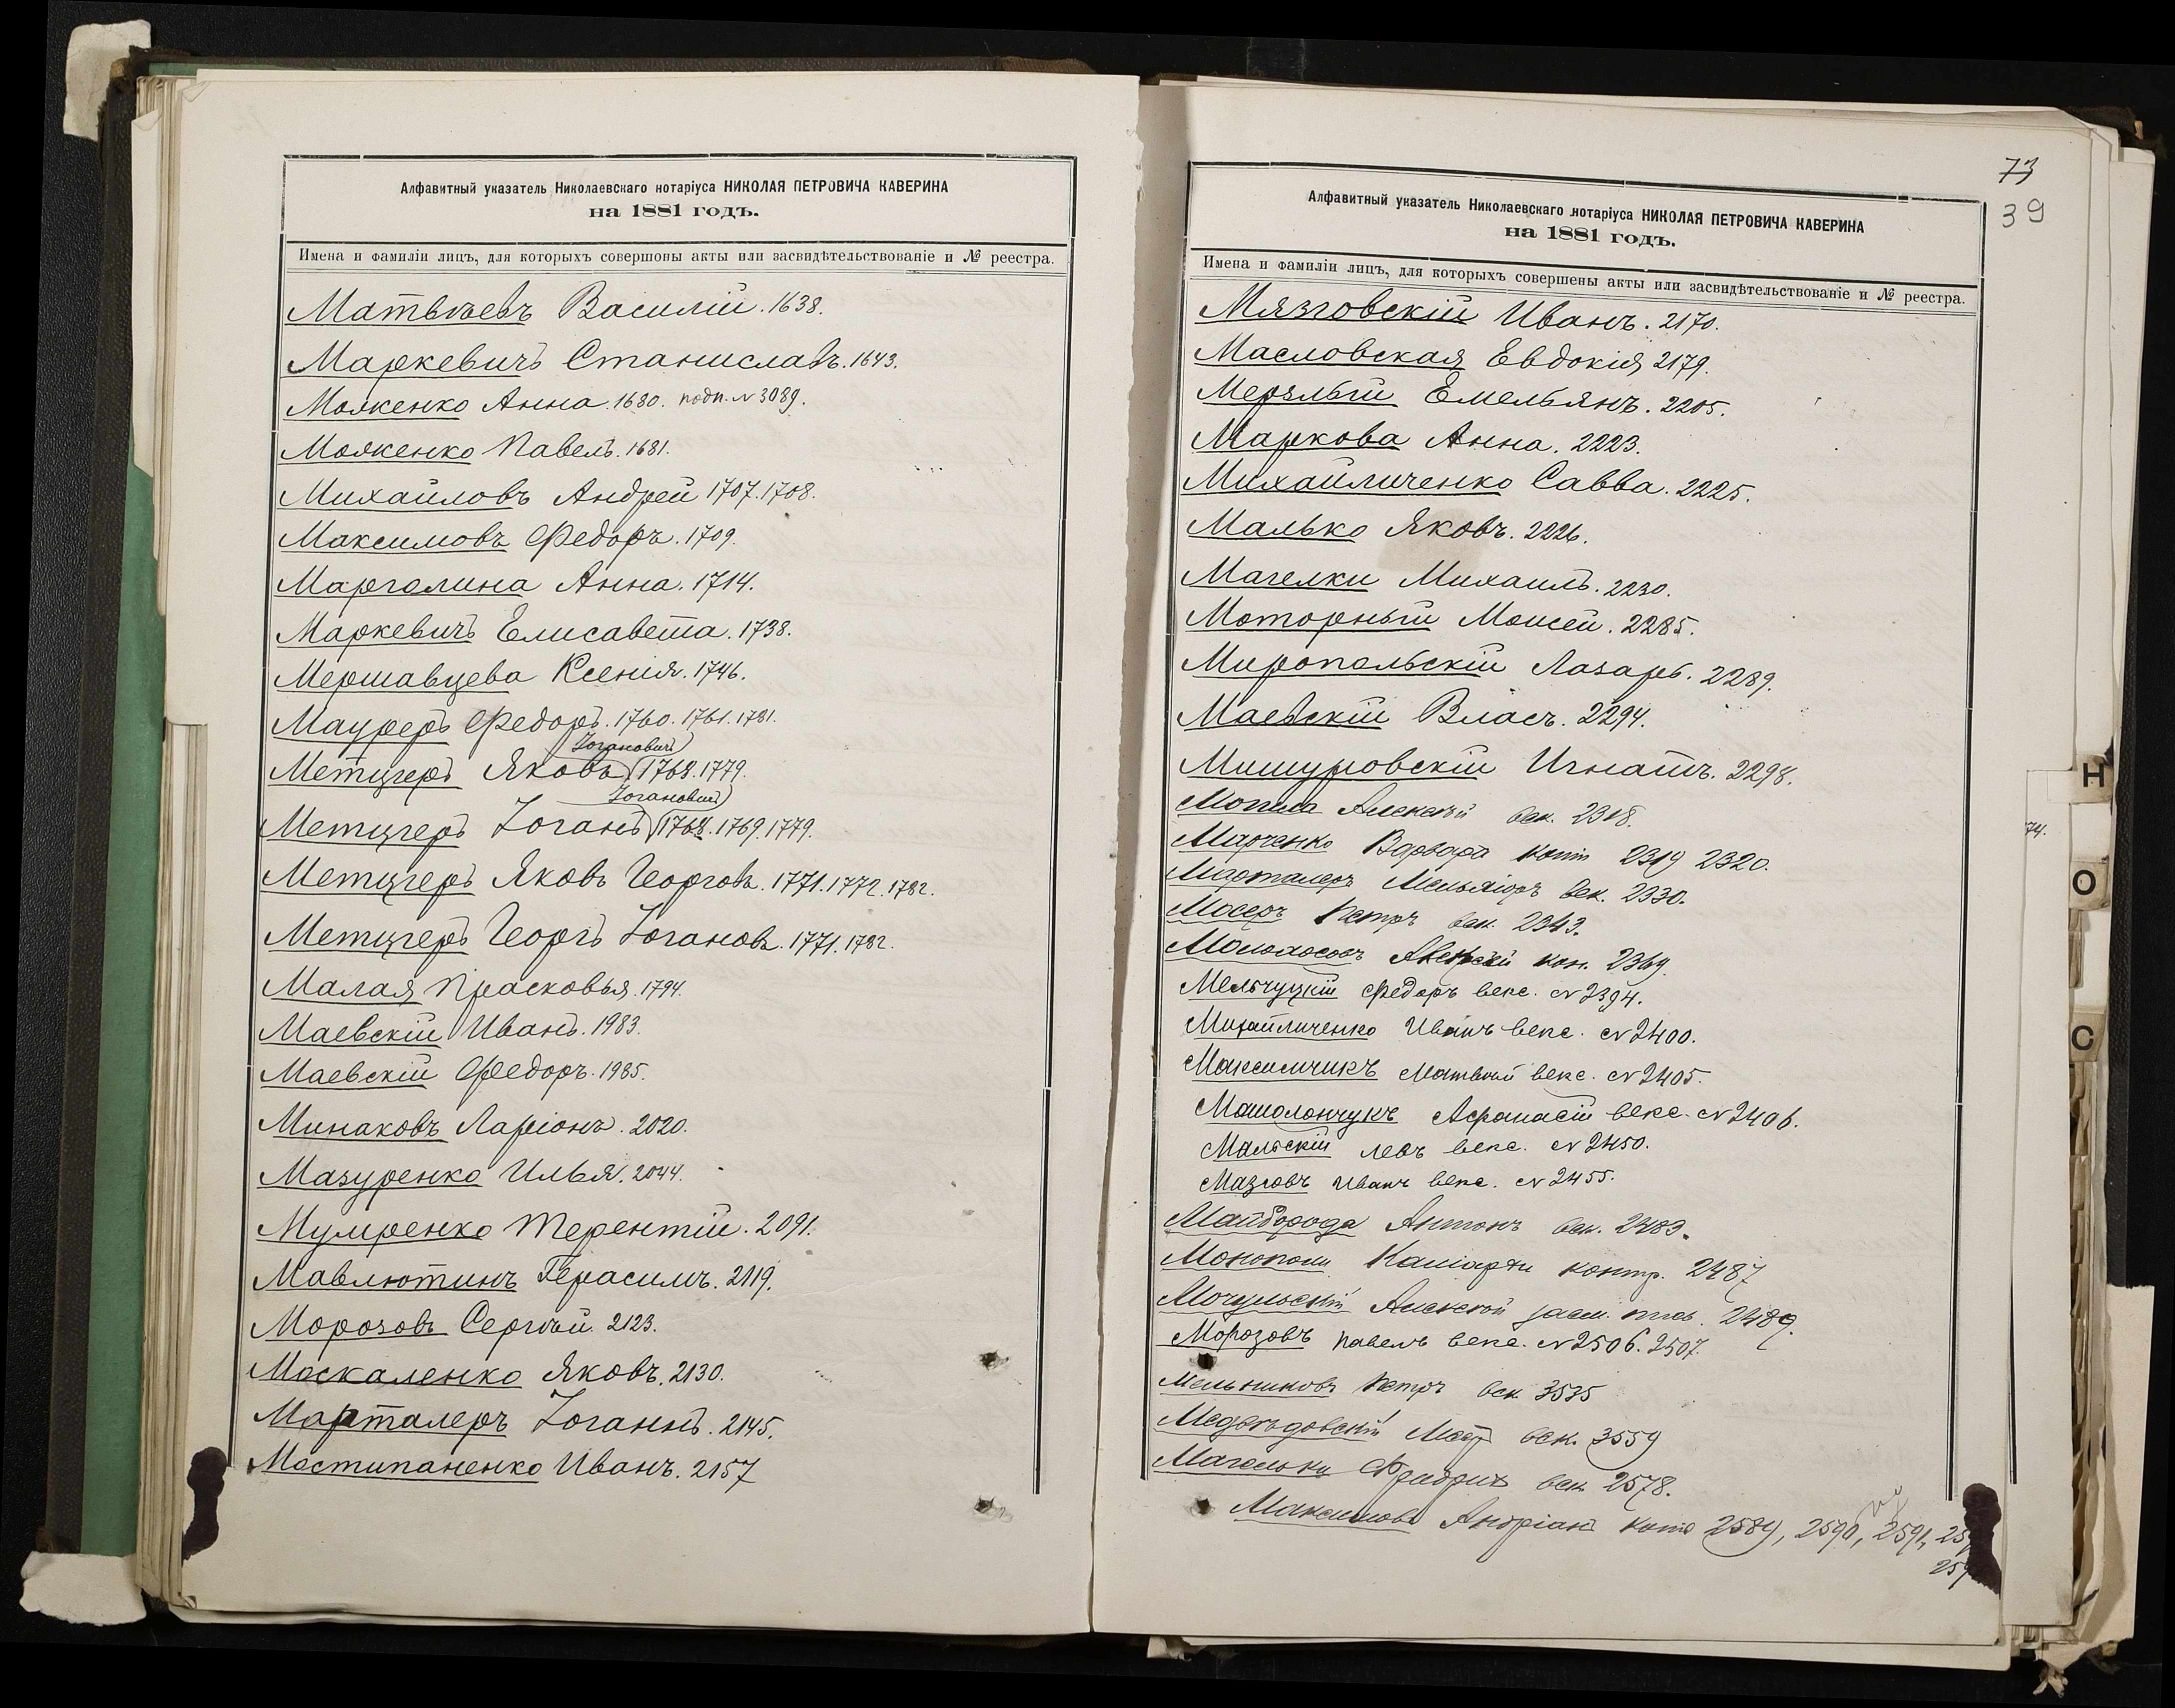 Алфавитный указатель Николаевскаго нотаріуса НИКОЛАЯ ПЕТРОВИЧА КАВЕРИНА
на 1881 годъ.
Имена и фамиліи лицъ, для которыхъ совершоны акты или засвидѣтельствованіе и № реестра.
Матвѣевъ Василій. 1638.
Маркевичъ Станиславъ. 1643.
Моякенко Анна. 1680. подп. № 3089.
Моякенко Павелъ. 1681.
Михайловъ Андрей 1707. 1708.
Максимовъ Федоръ. 1709.
Марголина Анна. 1714.
Маркевичъ Елисавета. 1738.
Мершавцева Ксенія. 1746.
Мауреръ Федоръ. 1760. 1761. 1781.
Іогановичъ
Метцгеръ Яковъ 1768. 1779.
Іогановичъ
Метцгеръ Іоганъ 1768. 1769. 1779.
Метцгеръ Яковъ Георговъ. 1771. 1772. 1782.
Метцгеръ Георгъ Іогановъ. 1771. 1782.
Малая Прасковья. 1794.
Маевскій Иванъ. 1983.
Маевскій Федоръ. 1985.
Минаковъ Ларіонъ. 2020.
Мазуренко Илья. 2044.
Мумренко Терентій. 2091.
Мавлютинъ Герасимъ. 2119.
Морозовъ Сергѣй. 2123.
Москаленко Яковъ. 2130.
Марталеръ Іоганнъ. 2145.
Мостипаненко Иванъ. 2157
73
39
Алфавитный указатель Николаевскаго нотаріуса НИКОЛАЯ ПЕТРОВИЧА КАВЕРИНА
на 1881 годъ.
Имена и фамиліи лицъ, для которыхъ совершены акты или засвидѣтельствованіе и № реестра.
Мязговскій Иванъ. 2170.
Масловская Евдокія 2179.
Мерзлый Емельянъ. 2205.
Маркова Анна. 2223.
Михайличенко Савва. 2225.
Малько Яковъ. 2226.
Магелки Михаилъ. 2230.
Моторный Моисей. 2285.
Миропольскій Лазарь. 2289.
Маевскій Власъ. 2294.
Мишуровскій Игнатъ. 2298.
Могила Алексѣй век. 2318.
Марченко Варвара копія 2319 2320.
Марталеръ Мельхіоръ век. 2330.
Мосеръ Петръ век. 2343.
2369.
Мельчуцкій Федоръ векс. № 2394.
Михайличенко Иванъ векс. № 2400.
Максимчикъ Матвѣй векс. № 2405.
Машолончукъ Афанасій векс. № 2406.
Мальскій Левъ векс. № 2450.
Мазговъ Иванъ векс. № 2455.
Майборода Антонъ век. 2483.
Монополи контр. 2487
Мочульскій Алексѣй 2489.
Морозовъ Павелъ векс. № 2506. 2507.
Мельниковъ Петръ век 3535
Медвѣдовскій век. 3559
Магельки Фридрих век 2578.
Максимовъ Андріанъ 2589, 2590, 2591,
74.
Н
О
С